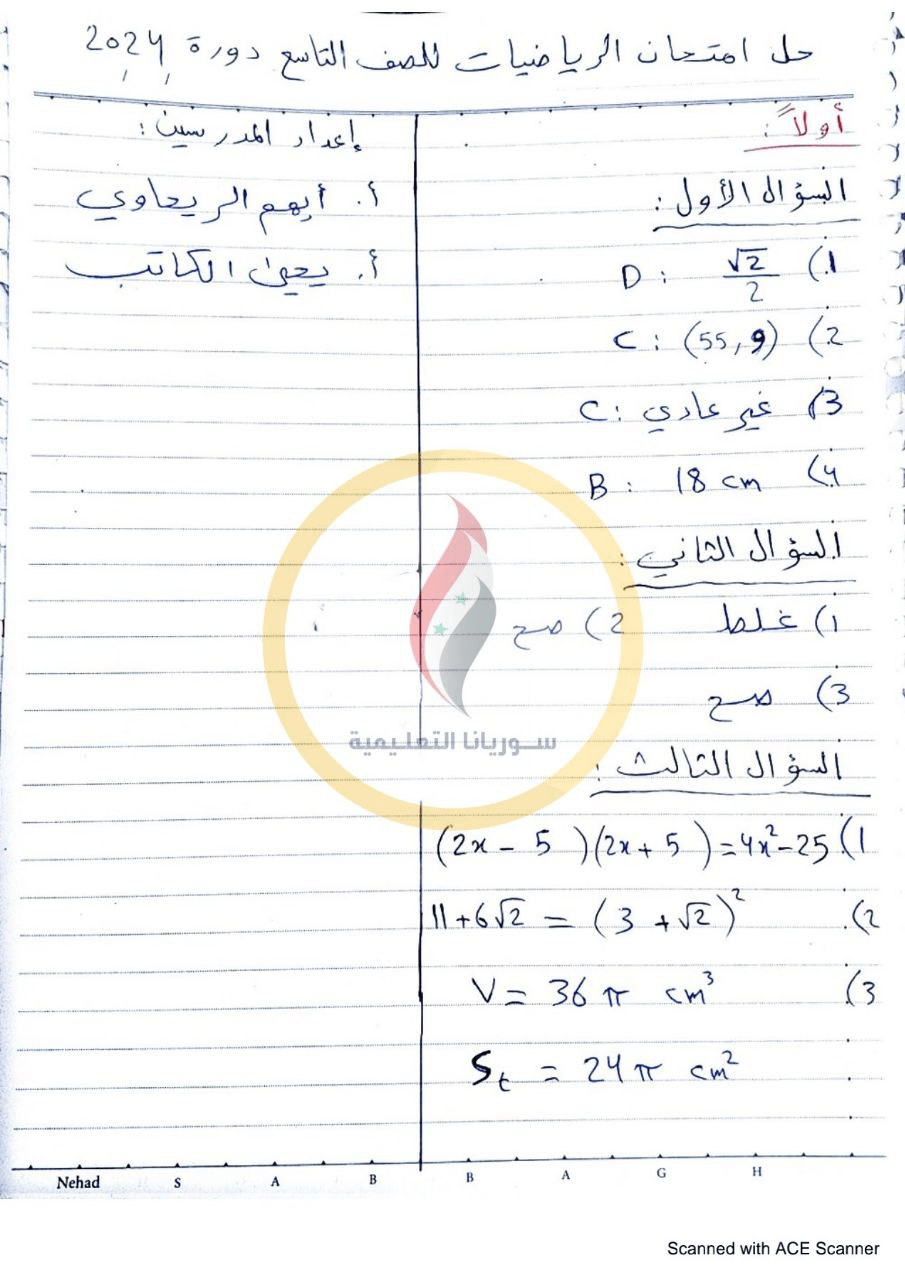 حل امتحان الرياضيات للصف التاسع دورة 2024
أولاً:
السؤال الأول:
1) D: √2/2
2) C: (55, 9)
3) C: غير عادي
4) B: 18 cm
السؤال الثاني:
1) غلط 2) صح
3) صح
السؤال الثالث:
1) (2x - 5)(2x + 5) = 4x² - 25
2) 11 + 6√2 = (3 + √2)²
3) V = 36 π cm³
S_t = 24 π cm²
إعداد المدرسين:
أ. أيهم الريحاوي
أ. يحيى الكاتب
سوريانا التعليمية
Nehad S A B B A G H
Scanned with ACE Scanner